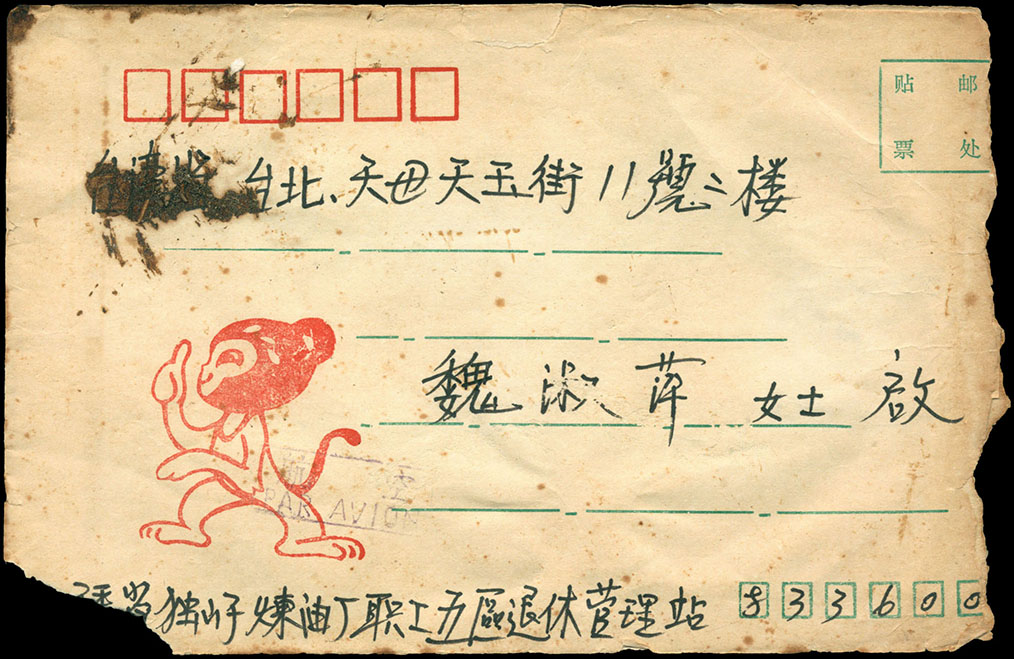 贴 邮
票 处
台北、天母天玉街11號二楼
魏淑萍女士 启
航 空
PAR AVION
疆 独山子炼油厂职工五區退休管理站 833600